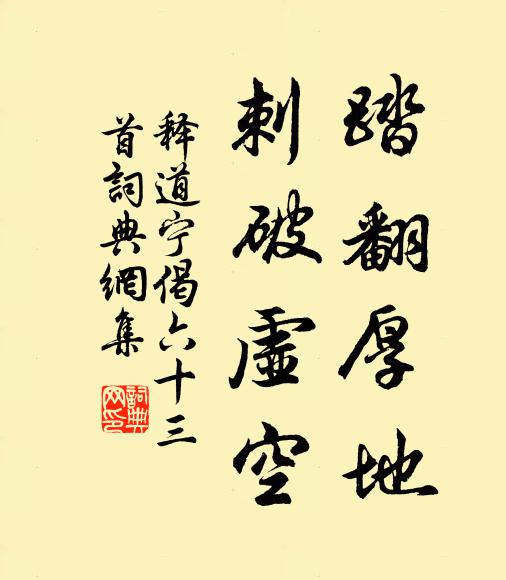 踏翻厚地
刺破虚空
释道宁偈六十三
首詞典網集
詞典
网印